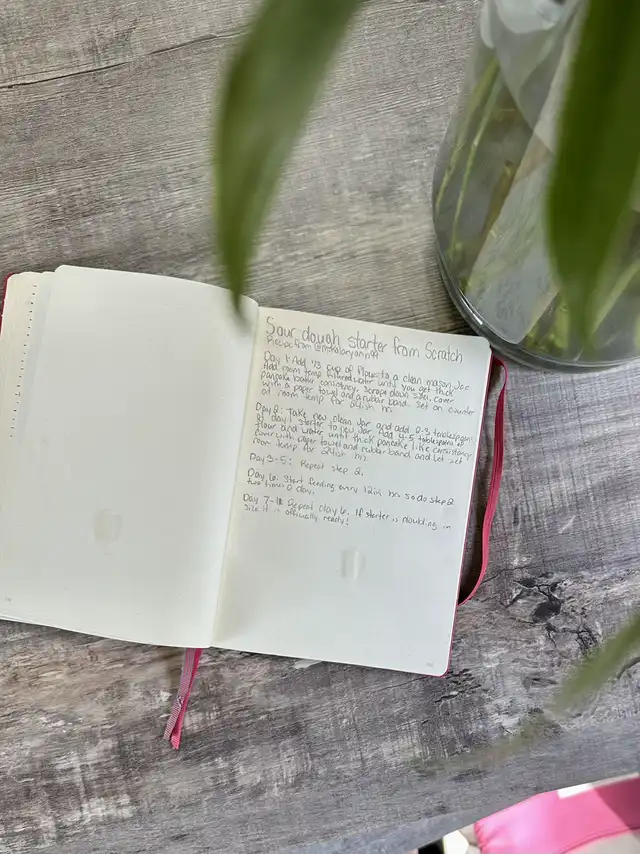 Sour dough starter from Scratch
Recipe from
Day 1: Add 1/3 cup of flour to a clean mason jar
Add room temp filtered water until you get thick
pancake batter consistency. Scrape down sides, cover
with a paper towel and a rubber band. Set on counter
at room temp for 24ish hr.
Day 2: Take new clean jar and add 2-3 tablespoons
of day 1 starter to new jar. Add 4-5 tablespoons of
flour and water until thick pancake like consistency
cover with paper towel and rubber band and let set
room temp for 24ish hrs.
Day 3-5: Repeat step 2.
Day 6: Start feeding every 12ish hrs so do step 2
two times a day.
Day 7- Repeat day 6. If starter is doubling in
size it is officially ready!